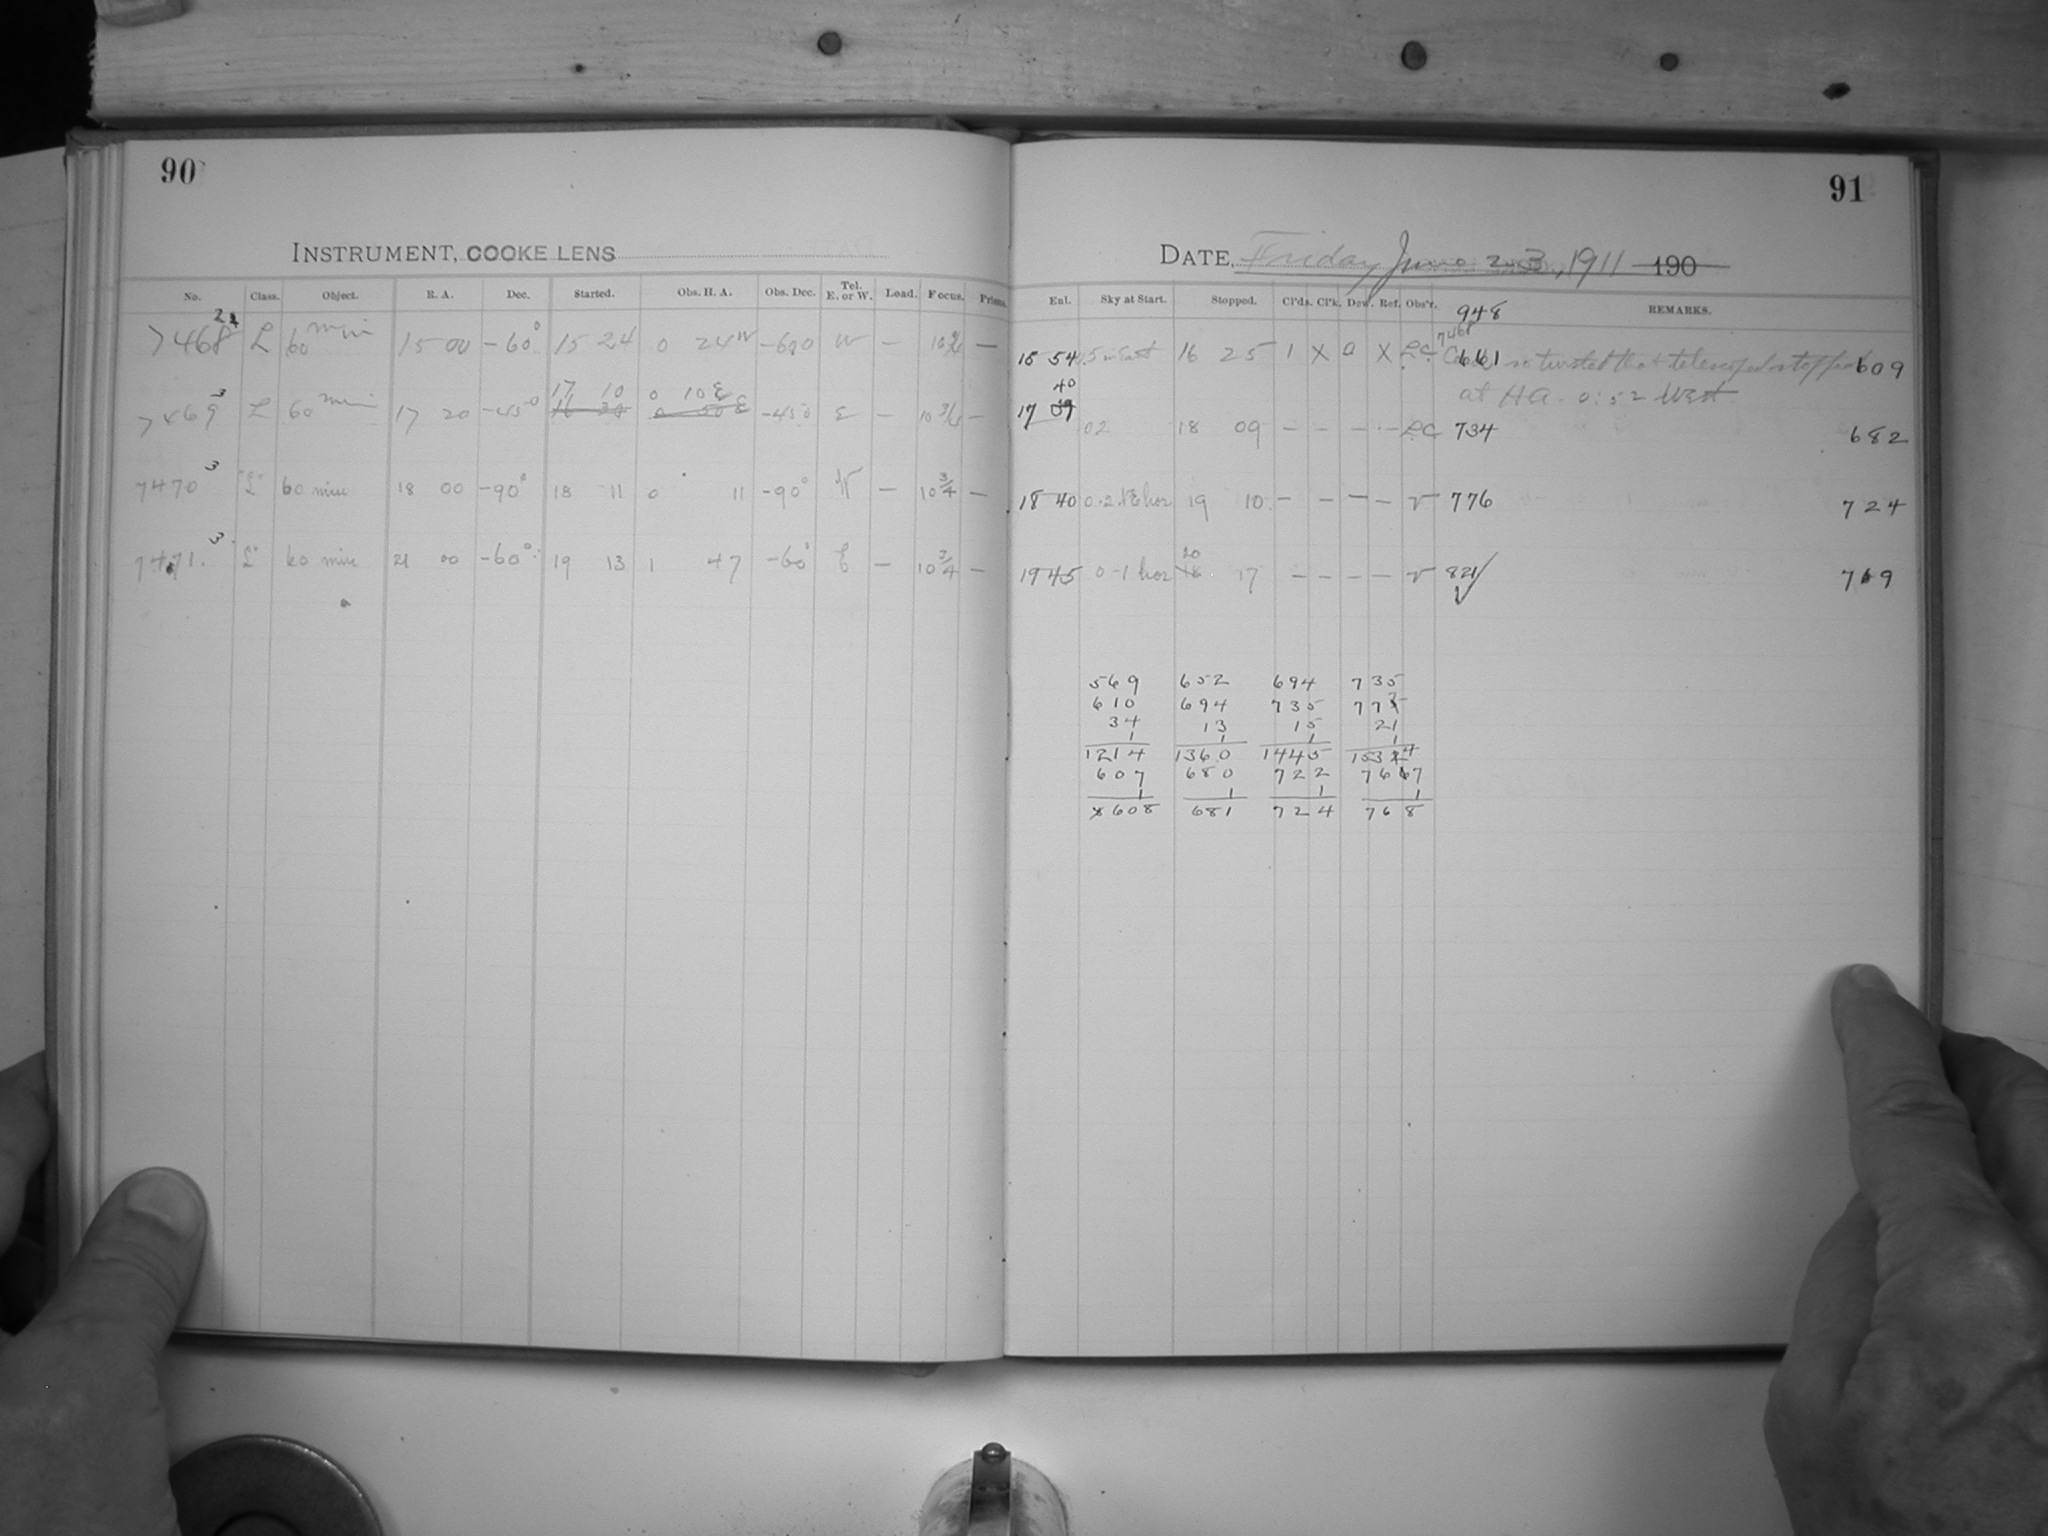 90
INSTRUMENT, COOKE LENS
No. Class. Object. R. A. Dec. Started. Obs. H. A. Obs. Dec. Tel. E. or W. Load. Focus. Prisms.
7468 L 60 min 15 00 -60° 15 24 0 24 W -60 W —
17 10 0 10 E
7469 3 L 60 min 17 20 -45° -45 E — 10 3/4 —
7470 3 "L" 60 min 18 00 -90° 18 11 0 11 -90° W — 10 3/4 —
7471. 3 L" 60 min 21 00 -60° 19 13 1 47 -60° E — 10 3/4 —
91
DATE, Friday June 23, 1911 190
Eql. Sky at Start. Stopped. Cl'ds. Cl'k. Dew. Ref. Obs'r. REMARKS.
948
7468
15 54 16 25 1 X 0 X L.C. 661 so twisted that telescope stopped 609
at HA. 0:52 West
40
17 02 18 09 – – – – L.C. 734 682
18 40 0-2 hor 19 10 – – – – v 776 724
20
19 45 0-1 hor 17 – – – – v 821 769
569 652 694 735
610 694 735 773
34 13 15 21
1 1 1 1
1214 1360 1445 1534
607 680 722 767
1 1 1
608 681 724 768